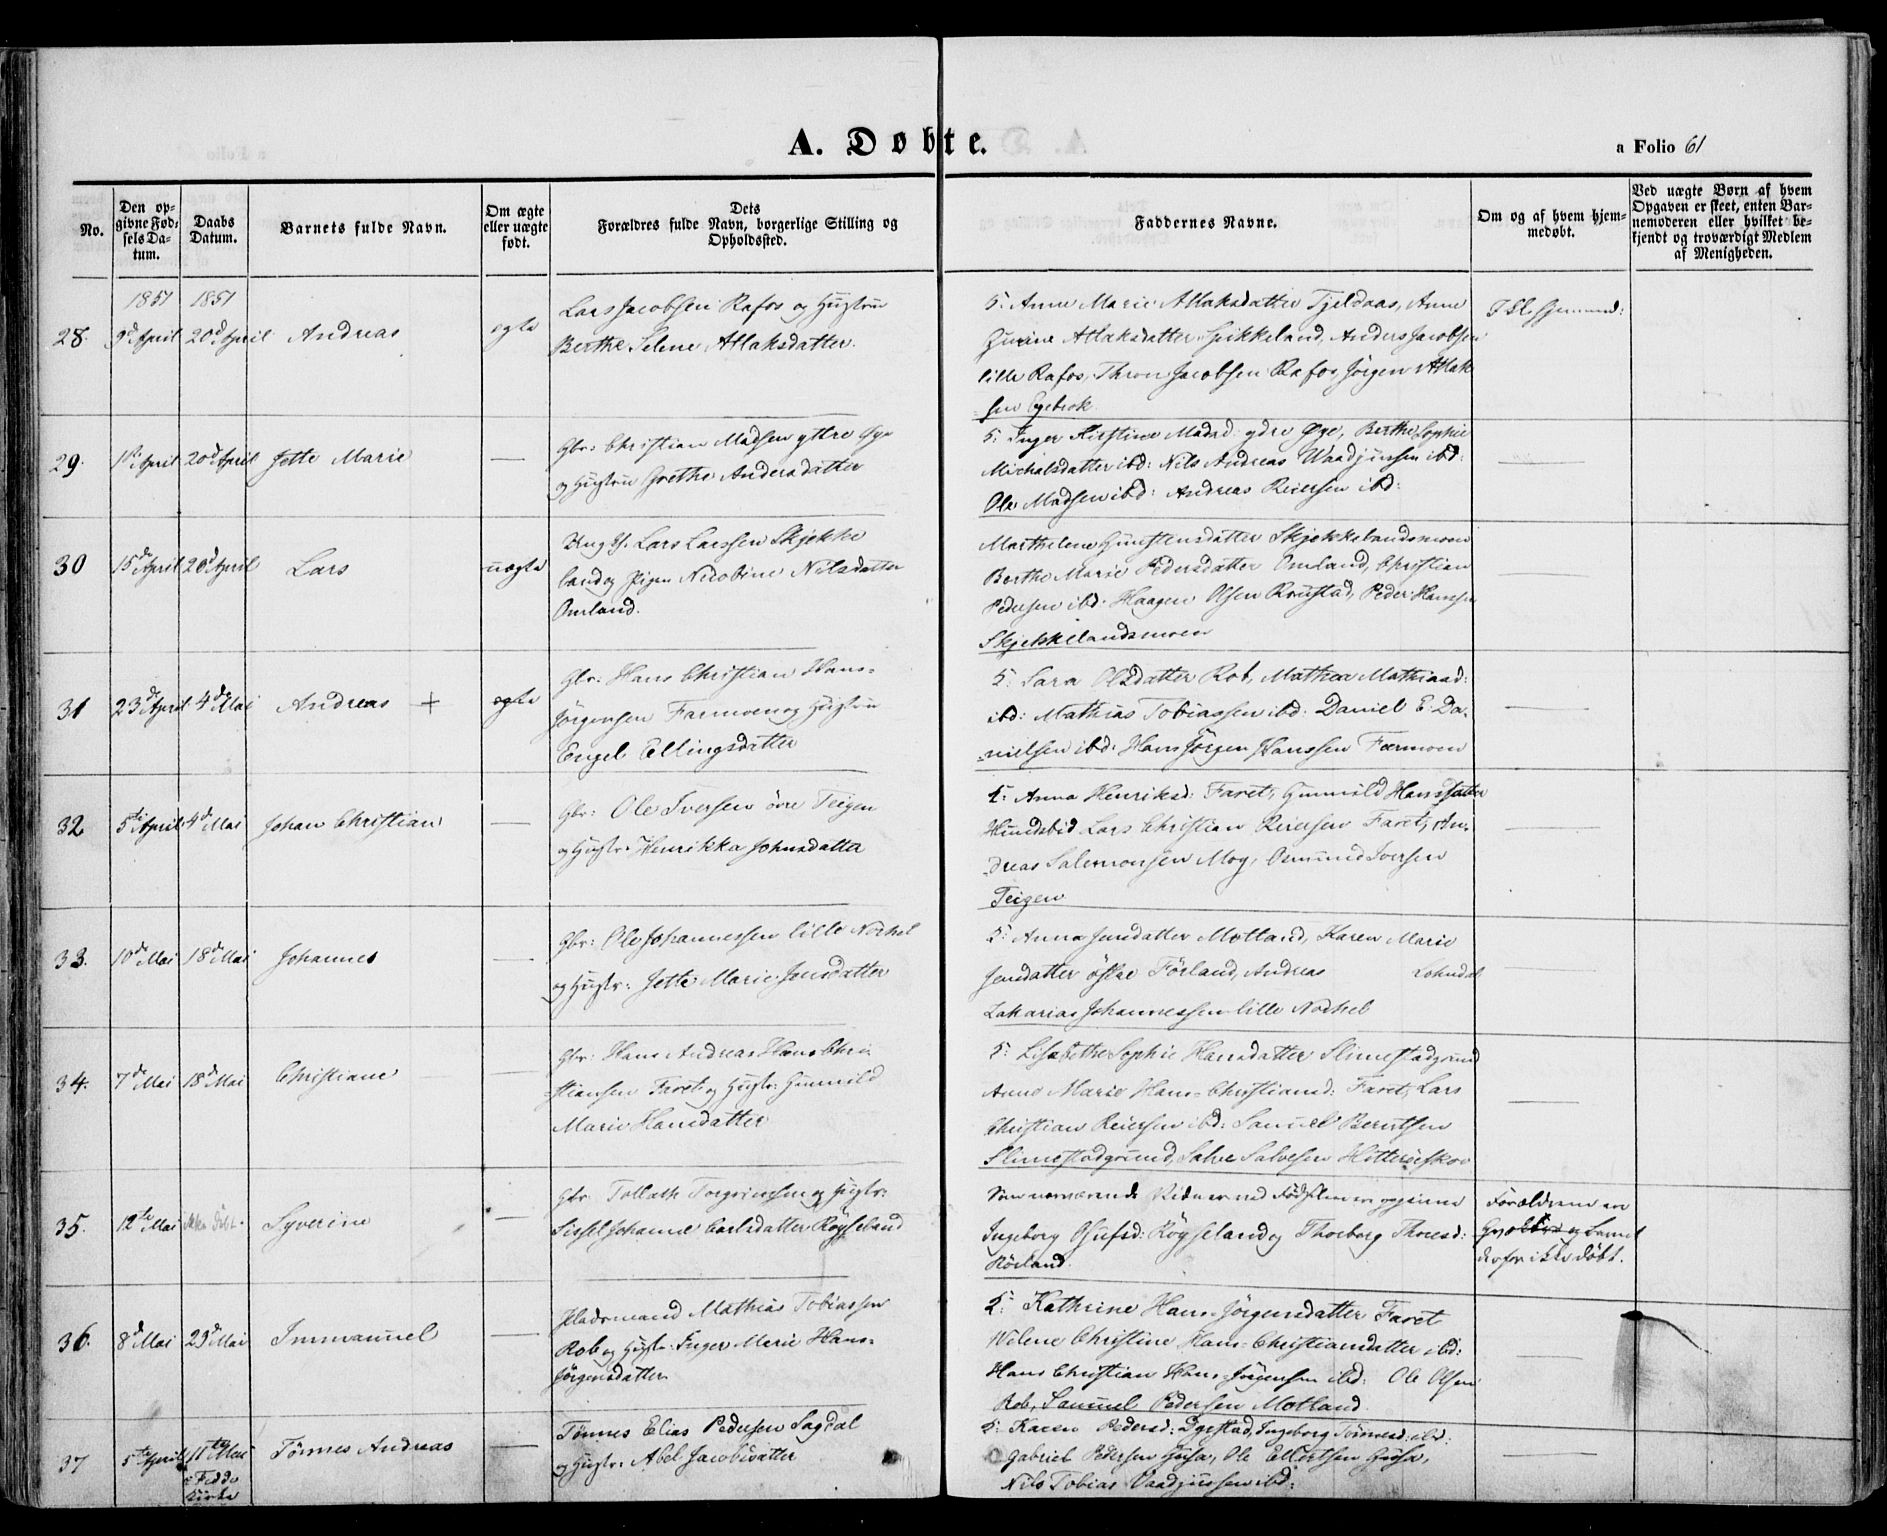 A. Døbte.
a Folio 61
No.
Den opgivne Fødselsdatum.
Daabs Datum.
Barnets fulde Navn.
Om ægte eller uægte født.
Dets Forældres fulde Navn, borgerlige Stilling og Opholdssted.
Faddernes Navne.
Om og af hvem hjemmedøbt.
Ved uægte Børn af hvem Opgaven er skeet, enten Barnemoderen eller hvilket bekjendt og troværdigt Medlem af Menigheden.
1851 1851
28. 9d April 20d April Andreas ægte
Lars Jacobsen Rafos og Hustru
Berthe Selene Atlaksdatter.
5. Anne Marie Atlaksdatter Tjeldaas, Anne
Atlaksdatter Spikkeland, Anders Jacobsen
lille Rafos, Thron Jacobsen Rafos, Jørgen Atlak
sen Egebrok.
29. April 20d April Jette Marie —
Gbr: Christian Madsen yttre Øye
og Hustru Grethe Andersdatter
5. Inger Kirstine Madsd: ydre Øye, Berthe Sophie
Michalsdatter ibd: Nils Andreas Waadjunsen ibd:
Ole Madsen ibd: Andreas Reiersen ibd:
30 15de April 20d April Lars uægte
Ungk. Lars Larssen Skjekke
land og Pigen Nicobine Nilsdatter
Omland.
Marthelene Gunstensdatter Skjekkelandsmoen
Berthe Marie Pedersdatter Omland, Christian
Pedersen ibd. Haagen Olsen Røustad, Peder Hanssen
Skjekkelandsmoen
31 23d April 4de Mai Andreas + ægte
Gbr: Hans Christian Hans-
Jørgensen Farmoen og Hustru
Engel Ellingsdatter
5. Sara Olsdatter Rob, Mathea Mathiasd:
ibd: Mathias Tobiassen ibd: Daniel E: Da-
nielsen ibd: Hans Jørgen Hanssen Farmoen
32 5te April 4de Mai Johan Christian —
Gbr: Ole Iversen øvre Teigen
og Hustr: Henrikka Johnsdatter
5: Anna Henriksd: Faret, Gunnild Hansdatter
Hundsbid Lars Christian Reiersen Faret, An-
dreas Salemonsen Moy, Osmund Iversen
Teigen
33. 10de Mai 18de Mai Johannes —
Gbr: Ole Johannessen lille Nedhel
og Hustr: Jette Marie Jensdatter
5: Anna Jensdatter Motland, Karen Marie
Jensdatter østre Førland, Andreas Lohndal
Zakarias Johannessen lille Nedhel
34. 7de Mai 18de Mai Christiane —
Gbr: Hans Andreas Hans Chri
stiansen Faret og Hustr: Gunnild
Marie Hansdatter
5: Lisabethe Sophie Hansdatter Slimestadgrund
Anne Marie Hans-Christiansd: Faret, Lars
Christian Reiersen ibd: Samuel Berntsen
Slimestadgrund, Salve Salvesen Hitterøeskov
35. 12te Mai ikke døbt. Syverine —
Gbr. Tollath Torgrimsen og Hustr:
Sissel Johanne Carlsdatter Røyseland
Som nærværende Vidner ved Fødselen ere opgivne
Ingeborg Osufsd: Røyseland og Thorborg Thoresd:
Rørland.
Forældrene ere
og Barnet
derfor ikke døbt.
36. 8de Mai 29de Mai Immanuel —
Pladsmand Mathias Tobiassen
Rob og Hustr: Inger Marie Hans-
Jørgensdatter
5: Kathrine Hans-Jørgensdatter Faret
Wilene Christine Hans-Christiansdatter ibd:
Hans Christian Hans-Jørgensen ibd: Ole Olsen
Rob, Samuel Pedersen Motland
37 5te April 11te Mai i Fedde Kirke Tønnes Andreas —
Tønnes Elias Pedersen Sagdal
og Hustr: Abel Jacobsdatter
5: Karen Pedersd: Dyrstad, Ingeborg Tønnesd: ibd:
Gabriel Pedersen Gusa, Ole Ellertsen Gusa,
Nils Tobias Vaadjunssen ibd: